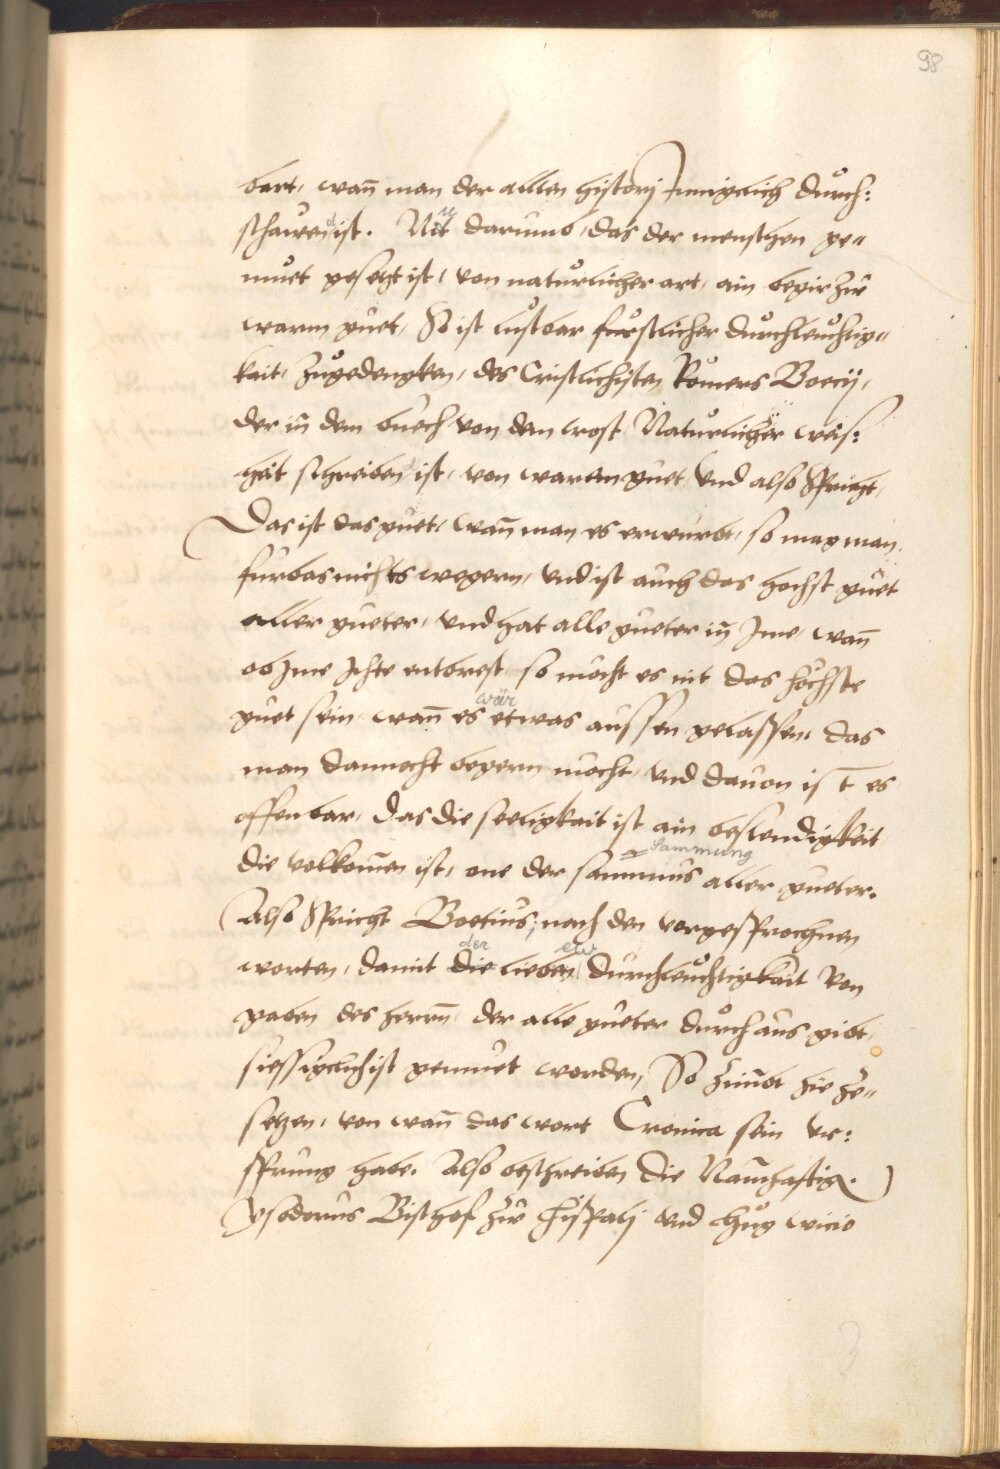 98
bart, wann man der allen histori Innigclich durch:
schawend ist. Nit darumb, das der menschen ge„
muet gesetzt ist, von naturlicher art, ain begir zw
warm guet, So ist lustbar furstlicher durchleuchtig„
kait, zugedengken, des Cristlichisten Römers Boecij,
der in dem buech von dem trost Naturlicher weis:
hait schreiben ist, von warem guet, Und also Spricht,
Das ist das guet, wann man es erwurbt, so mag man
furbas nichts wegern, Und ist auch das hochst guet
aller gueter, Und hat alle gueter in Jme, wann
ob Jme Ichte entbrest, so mocht es nit das höchste
wär
guet sein, wann es etwas aussen gelassen, das
man dannocht begern mocht, Und dauon ist es
offenbar, Das die seeligkait ist ain bestendigkeit
Sammung
die volkomen ist, one der sammnus aller gueter.
Also Spricht Boetius, nach den vorgesprochnen
der ew
worten, damit die lieben durchleuchtigkait Von
gaben des herrn, der alle gueter durchaus gibt,
siessigclich ist gemuet worden, So zimbt hie ze„
setzen, von wann das wort Cronica sein Vr:
sprung habe. Also beschreiben die Namhafftig.
Ysodorus Bischof zw Hispali Und Hug wicio
3